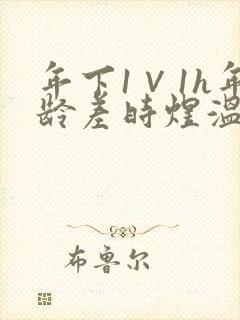 年下1V1h年
龄差时煌温
布鲁尔